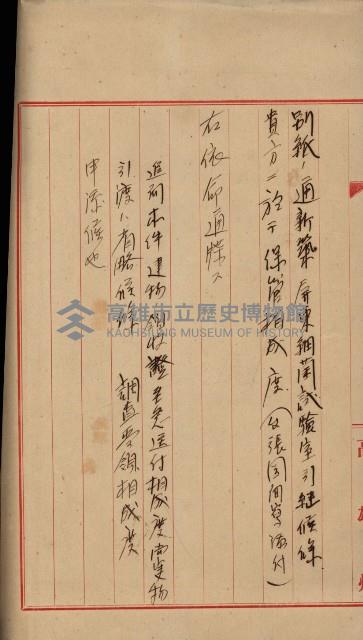 別紙ノ通新築屏東細菌試驗室引継候條
貴方ニ於テ保管相成度(公張図間等添付)
右依命通牒ス
追而本件建物領收證至急送付相成度尚実物
引渡ハ省略候條 調査受領相成度
申添候也
高雄州
高雄市立歷史博物館
KAOHSIUNG MUSEUM OF HISTORY